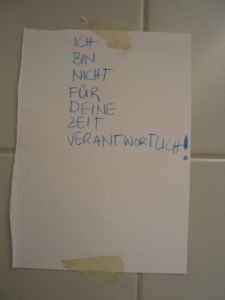 ICH
BIN
NICHT
FÜR
DEINE
ZEIT
VERANTWORTLICH!